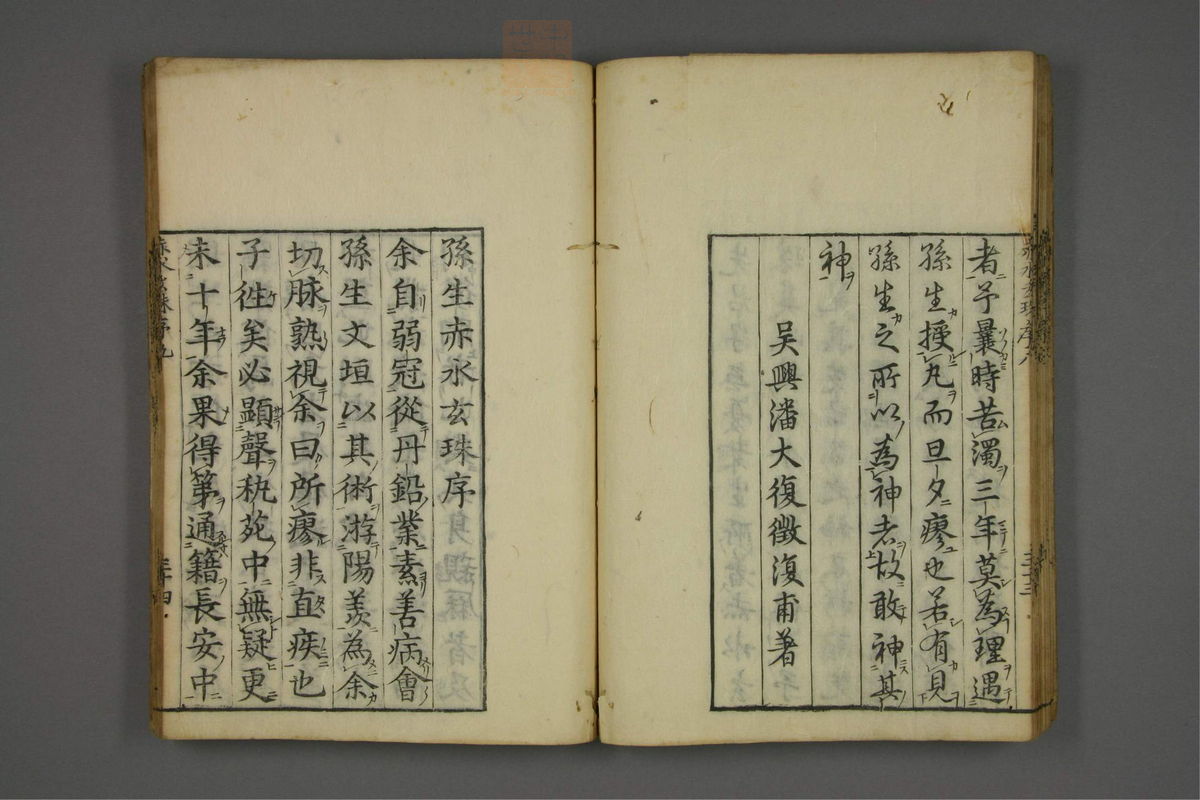 者予曩時苦濁三年莫為理遇
孫生授丸而旦夕瘳也若有見
孫生之所以為神者故敢神其
神
吴興潘大復徵復甫著
孫生赤水玄珠序
余自弱冠從丹鉛業素善病會
孫生文垣以其術游陽羨為余
切脉熟視余曰所瘳非直疾也
子徃矣必顕聲秇苑中無疑更
未十年余果得第通籍長安中